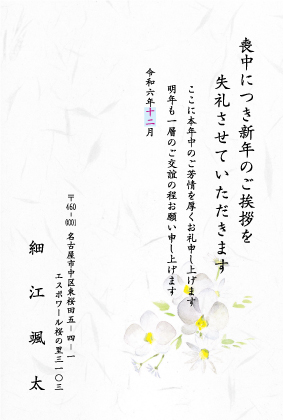 喪中につき新年のご挨拶を
失礼させていただきます
ここに本年中のご芳情を厚くお礼申し上げます
明年も一層のご交誼の程お願い申し上げます
令和六年十二月
〒460-0001 名古屋市中区東桜田五-四-一
エスポワール桜の里三一〇三
細江颯太